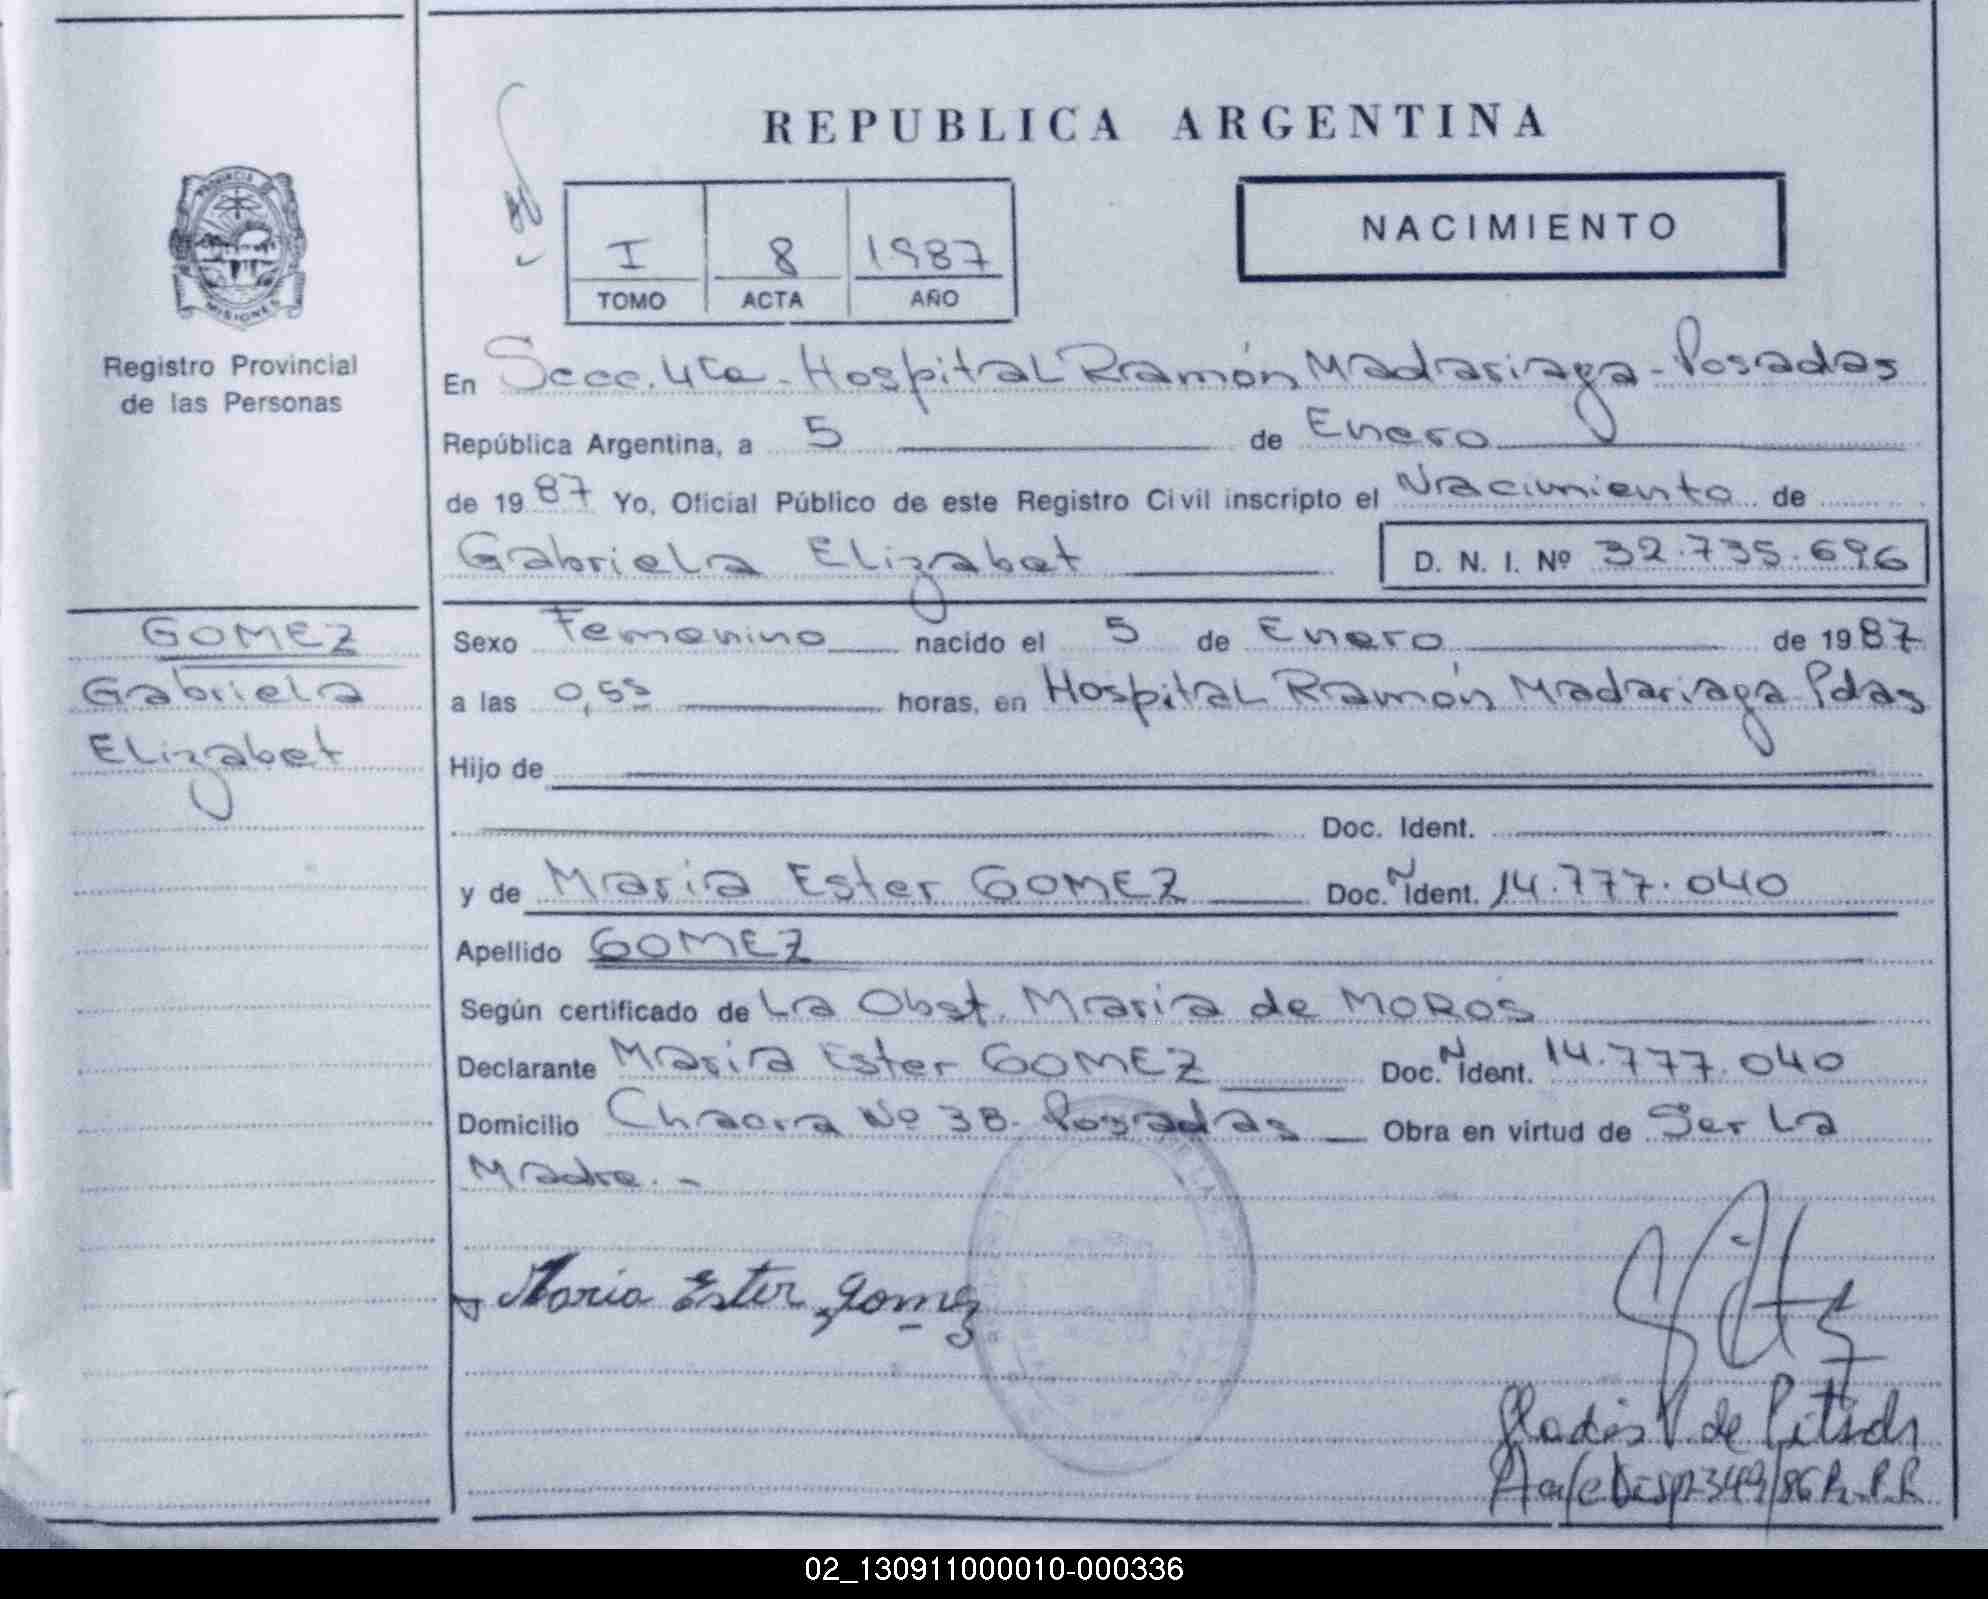 REPUBLICA ARGENTINA
NACIMIENTO
I 8 1987
TOMO ACTA AÑO
PROVINCIA DE
MISIONES
Registro Provincial
de las Personas
En Secc. 4ta - Hospital Ramón Madariaga - Posadas
República Argentina, a 5 de Enero
de 1987 Yo, Oficial Público de este Registro Civil inscripto el Nacimiento de
Gabriela Elizabet D. N. I. Nº 32.735.696
GOMEZ
Gabriela
Elizabet
Sexo Femenino nacido el 5 de Enero de 1987
a las 0,55 horas, en Hospital Ramón Madariaga Pdas
Hijo de
Doc. Ident.
y de Maria Ester GOMEZ Doc. N Ident. 14.777.040
Apellido GOMEZ
Según certificado de La Obst. Maria de MOROS
Declarante Maria Ester GOMEZ Doc. N Ident. 14.777.040
Domicilio Chacra Nº 38 - Posadas Obra en virtud de Ser La
Madre. -
Maria Ester Gomez
Gladis V. de Pitsch
349/86 R.P.P.
02_130911000010-000336